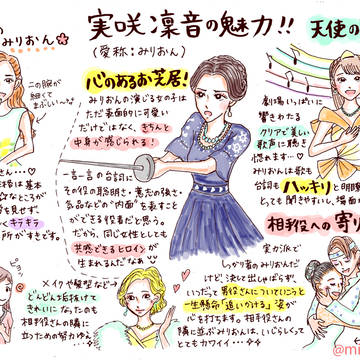 実咲凛音の魅力!!
(愛称:みりおん)
の
みりおん
天使の
二の腕が
細くて
まぶしい〜
心のあるお芝居!
みりおんの演じる女の子は
ただ表面的に可愛い
だけではなく、きちんと
中身が感じられる!
一言一言の台詞に
その役の聡明さ・意志の強さ・
気品などの"内面"を表すこと
ができる役者だと思う。
だから、同じ女性としても
共感できるヒロインが
生まれるんだなあ
劇場いっぱいに
響きわたる
クリアで美しい
歌声に聴き
惚れます…♡
みりおんは歌も
台詞もハッキリと明瞭
とても聞きやすいし、場面
は基本
なところが
を見せず、
キラキラ
所がすきです。
相手役への寄り
メイクや髪型など→
どんどん垢抜けて
きれいになったのも
相手役さんの隣に
立つための努力ゆえ
実力派で
しっかり者のみりおんだ
けど、決して出しゃばらず、
いつだって男役さんについていこうと
一生懸命"追いかける"姿が
心を打ちます。相手役さんの
隣に並ぶみりおんは、いじらしくって
とてもカワイイ…☆
@mi